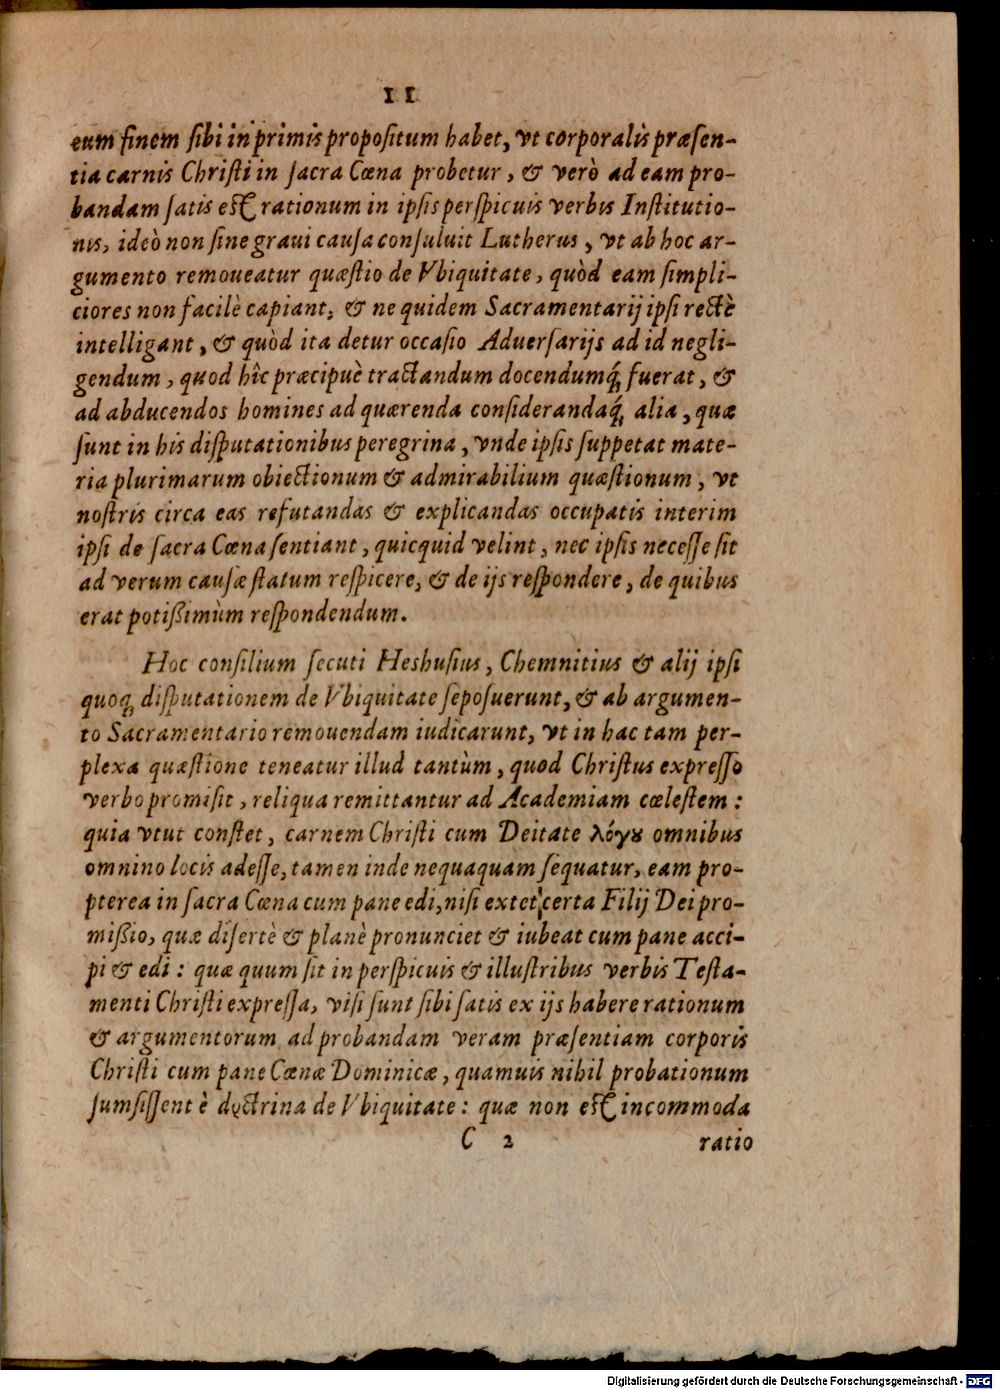 11
eum finem ſibi in primis propoſitum habet, vt corporalis præſen-
tia carnis Chriſti in ſacra Cœna probetur, & verò ad eam pro-
bandam ſatis eſt rationum in ipſis perſpicuis verbis Inſtitutio-
nis, ideò non ſine graui cauſa conſuluit Lutherus, vt ab hoc ar-
gumento remoueatur quæſtio de Vbiquitate, quòd eam ſimpli-
ciores non facilè capiant, & ne quidem Sacramentarij ipſi rectè
intelligant, & quòd ita detur occaſio Aduerſarijs ad id negli-
gendum, quod hîc præcipuè tractandum docendumq́; fuerat, &
ad abducendos homines ad quærenda conſiderandaq́; alia, quæ
ſunt in his diſputationibus peregrina, vnde ipſis ſuppetat mate-
ria plurimarum obiectionum & admirabilium quæſtionum, vt
noſtris circa eas refutandas & explicandas occupatis interim
ipſi de ſacra Cœna ſentiant, quicquid velint, nec ipſis neceſſe ſit
ad verum cauſæ ſtatum reſpicere, & de ijs reſpondere, de quibus
erat potißimùm reſpondendum.
Hoc conſilium ſecuti Heshuſius, Chemnitius & alij ipſi
quoq; diſputationem de Vbiquitate ſepoſuerunt, & ab argumen-
to Sacramentario remouendam iudicarunt, vt in hac tam per-
plexa quæſtione teneatur illud tantùm, quod Chriſtus expreſſo
verbo promiſit, reliqua remittantur ad Academiam cœleſtem:
quia vtut conſtet, carnem Chriſti cum Deitate λόγȣ omnibus
omnino locis adeſſe, tamen inde nequaquam ſequatur, eam pro-
pterea in ſacra Cœna cum pane edi, niſi extet certa Filij Dei pro-
mißio, quæ diſertè & planè pronunciet & iubeat cum pane acci-
pi & edi: quæ quum ſit in perſpicuis & illuſtribus verbis Teſta-
menti Chriſti expreſſa, viſi ſunt ſibi ſatis ex ijs habere rationum
& argumentorum ad probandam veram præſentiam corporis
Chriſti cum pane Cœnæ Dominicæ, quamuis nihil probationum
ſumſiſſent è doctrina de Vbiquitate: quæ non eſt incommoda
C 2 ratio
Digitalisierung gefördert durch die Deutsche Forschungsgemeinschaft - DFG